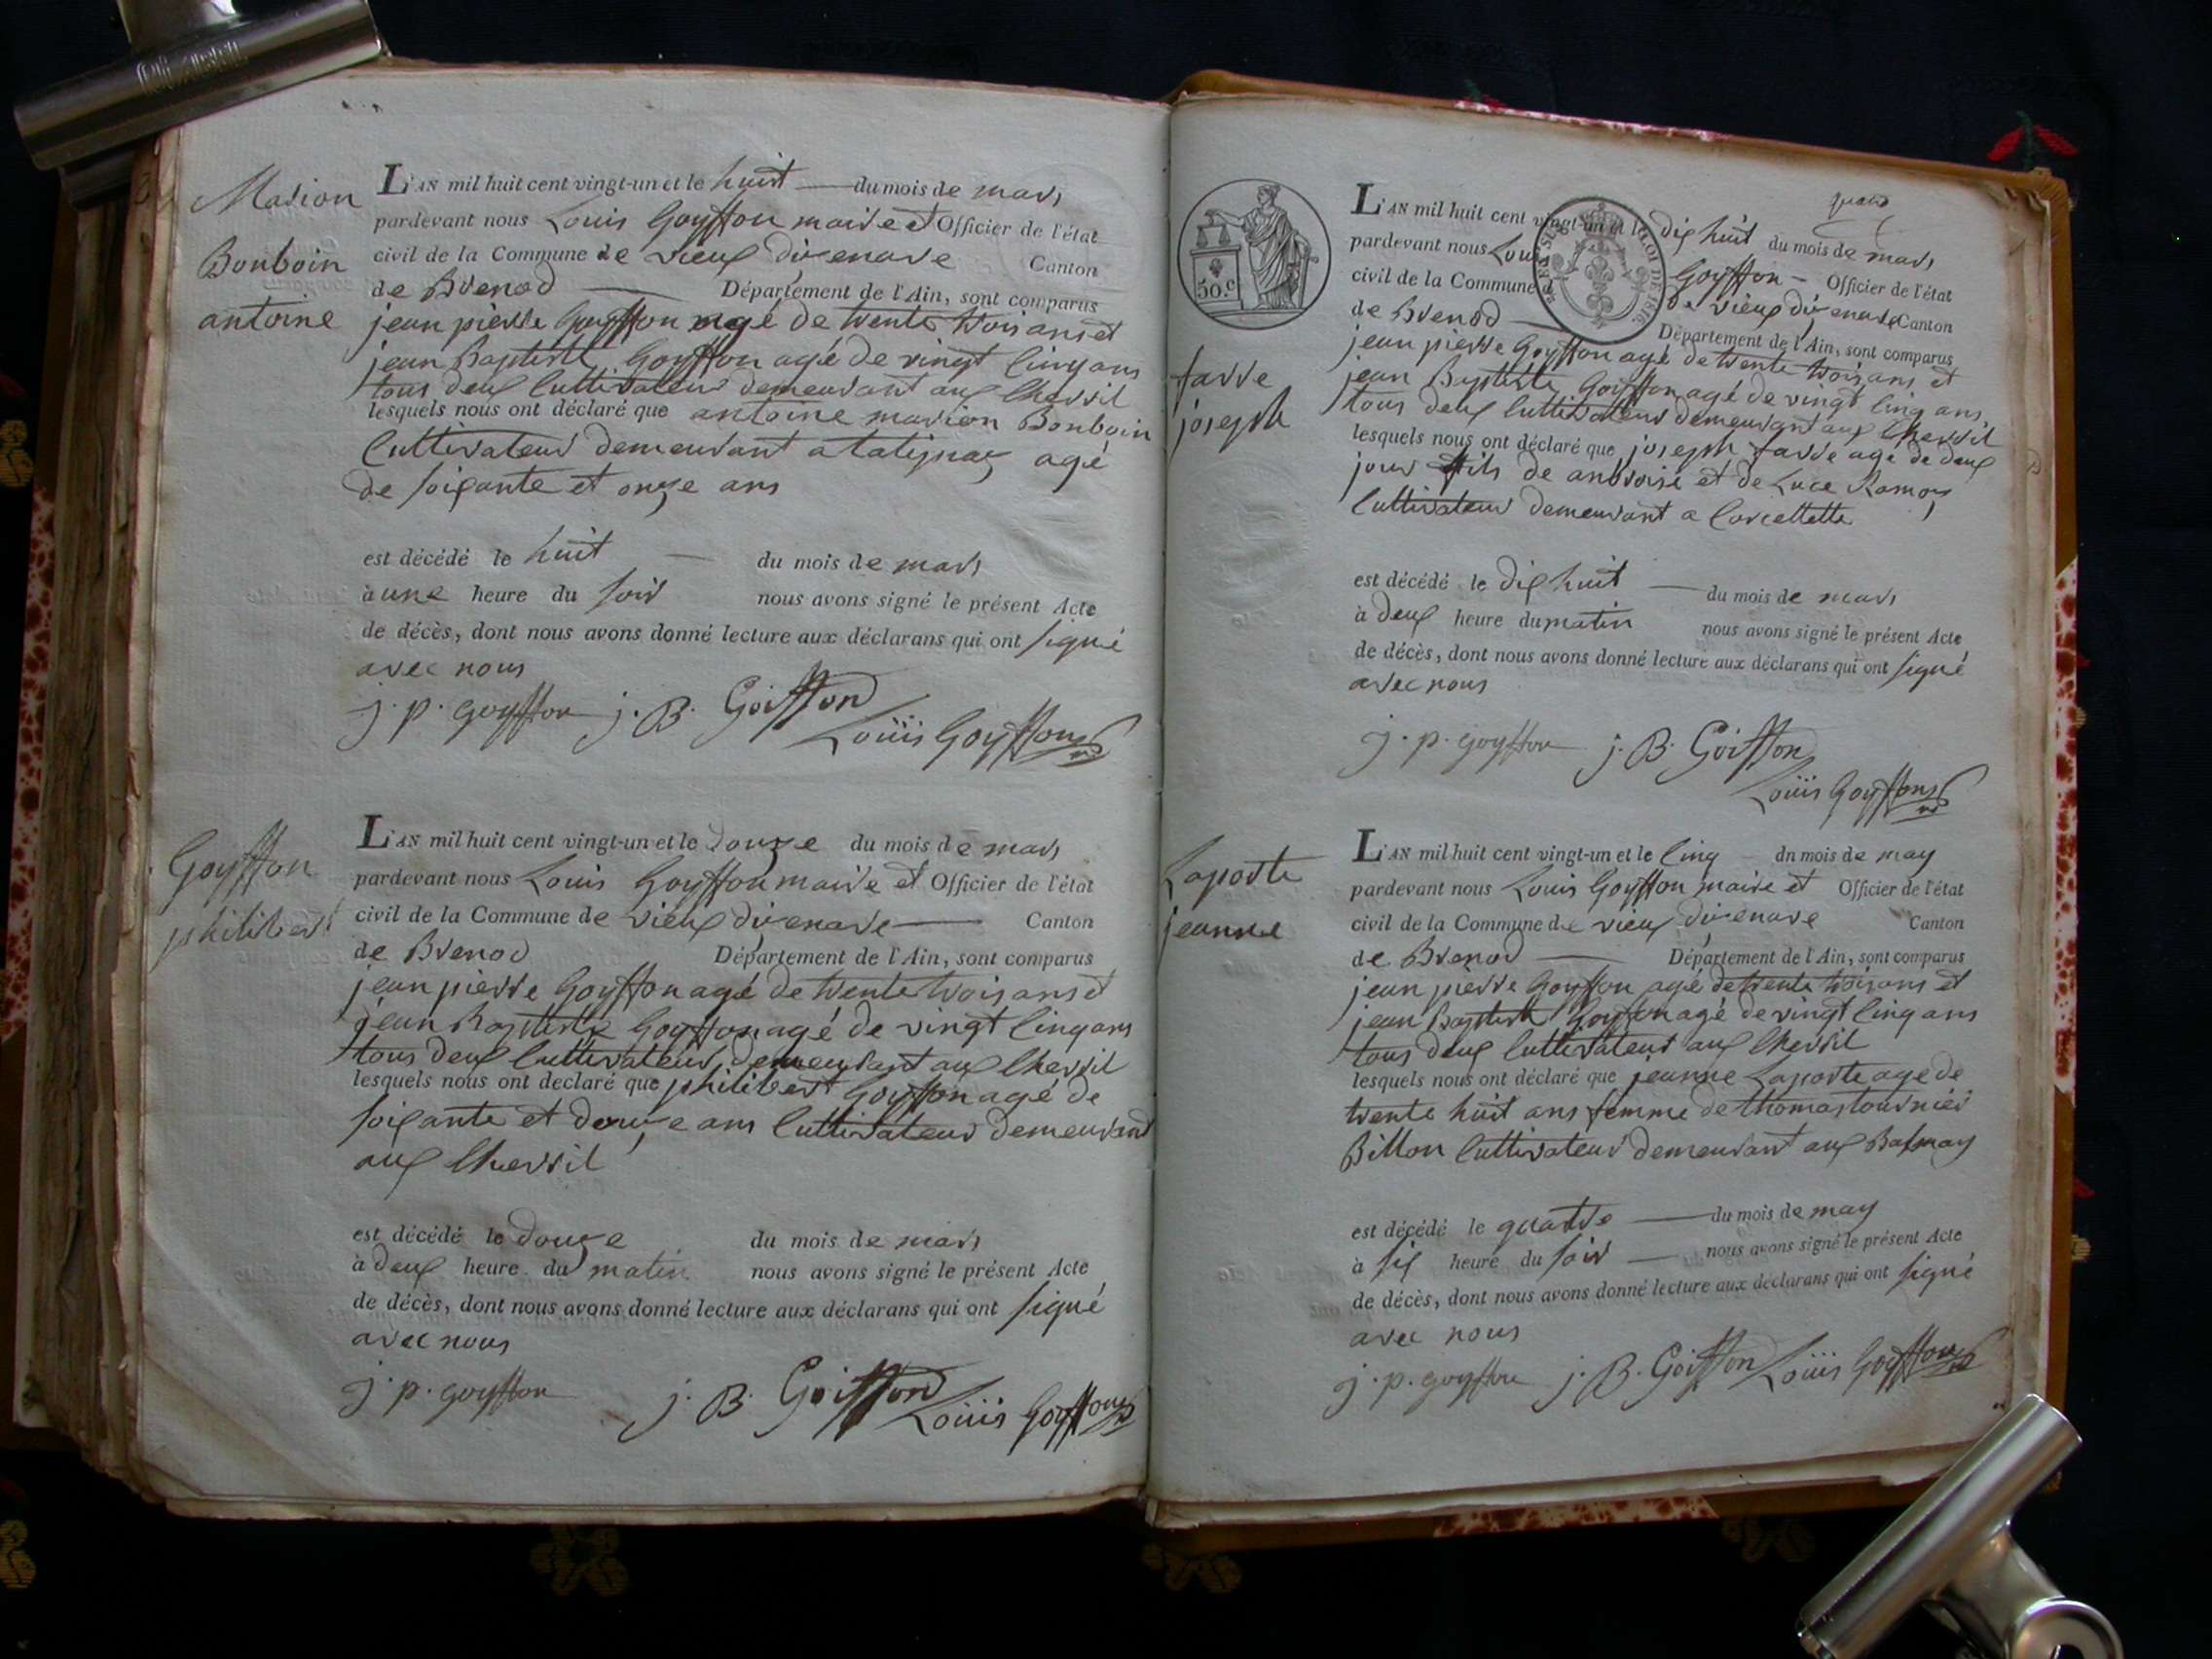 Marion
Bonboin
antoine
L'AN mil huit cent vingt-un et le huit du mois de mars
pardevant nous Louis Goyffon maire et Officier de l'état
civil de la Commune de vieux disenave Canton
de Brenod Département de l'Ain, sont comparus
jean pierre Goyffon agé de trente trois ans et
jean Baptiste Goyffon agé de vingt cinq ans
tous deux cultivateur demeurant aux Chevril
lesquels nous ont déclaré que antoine marion Bonboin
Cultivateur demeurant a talignay agé
de soixante et onze ans
est décédé le huit du mois de mars
à une heure du soir nous avons signé le présent Acte
de décès, dont nous avons donné lecture aux déclarans qui ont signé
avec nous
j. p. goyffon j. B. Goiffon
Louis Goyffon
Goyffon
philibert
L'AN mil huit cent vingt-un et le douze du mois de mars
pardevant nous Louis Goyffon maire et Officier de l'état
civil de la Commune de vieux disenave Canton
de Brenod Département de l'Ain, sont comparus
jean pierre Goyffon agé de trente trois ans et
jean Baptiste Goyffon agé de vingt cinq ans
tous deux cultivateur demeurant aux Chevril
lesquels nous ont declaré que philibert Goyffon agé de
soixante et douze ans cultivateur demeurant
aux Chevril
est décédé le douze du mois de mars
à deux heure du matin nous avons signé le présent Acte
de décès, dont nous avons donné lecture aux déclarans qui ont signé
avec nous
j. p. goyffon j. B. Goiffon
Louis Goyffon
50.c
farre
joseph
L'AN mil huit cent vingt-un et le dix huit du mois de mars
pardevant nous Louis Goyffon Officier de l'état
civil de la Commune de vieux disenave Canton
de Brenod Département de l'Ain, sont comparus
jean pierre Goyffon agé de trente trois ans et
jean Baptiste Goyffon agé de vingt cinq ans
tous deux cultivateur demeurant aux Chevril
lesquels nous ont déclaré que joseph farre age de deux
jour fils de anbroise et de Luce Ramoy
Cultivateur demeurant a Corcellette
est décédé le dix huit du mois de mars
à deux heure du matin nous avons signé le présent Acte
de décès, dont nous avons donné lecture aux déclarans qui ont signé
avec nous
j. p. goyffon j. B. Goiffon
Louis Goyffon
Laporte
jeanne
L'AN mil huit cent vingt-un et le cinq du mois de may
pardevant nous Louis Goyffon maire et Officier de l'état
civil de la Commune de vieux disenave Canton
de Brenod Département de l'Ain, sont comparus
jean pierre Goyffon agé de trente trois ans et
jean Baptiste Goyffon agé de vingt cinq ans
tous deux cultivateur aux Chevril
lesquels nous ont déclaré que jeanne Laporte age de
trente huit ans femme de thomas tournier
Billon cultivateur demeurant aux Balmay
est décédé le quatre du mois de may
à six heure du soir nous avons signé le présent Acte
de décès, dont nous avons donné lecture aux déclarans qui ont signé
avec nous
j. p. goyffon j. B. Goiffon Louis Goyffon